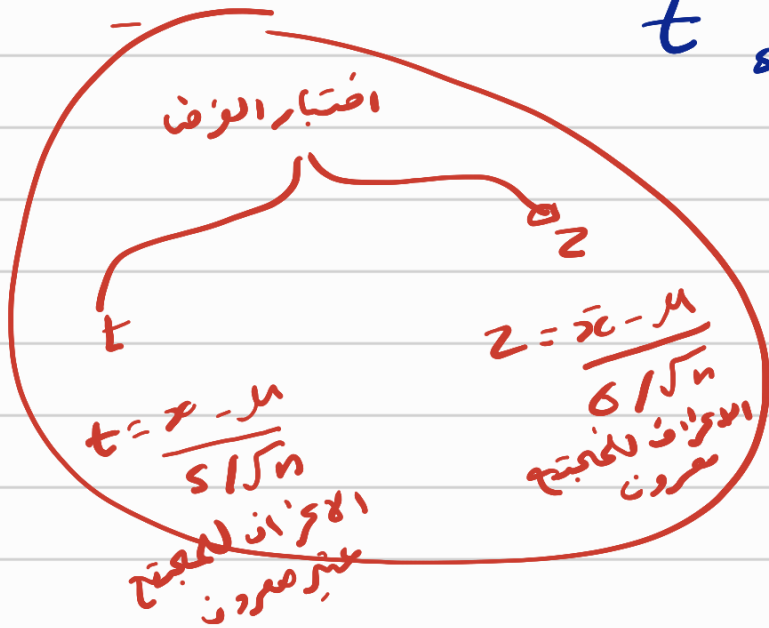 t
اختبار الفرض
Z
t
Z = x̄ - μ / σ/√n
الانحراف للمجتمع
معروف
t = x̄ - μ / s/√n
الانحراف للمجتمع
غير معروف